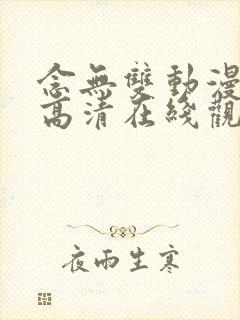 念無雙動漫
高清在綫觀
夜雨生寒